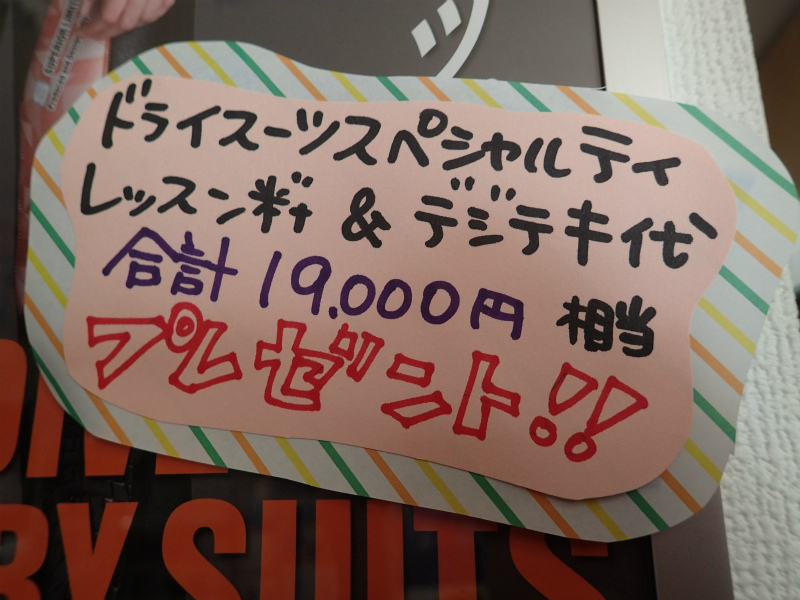 ドライスーツスペシャルティ
レッスン料 & デジテキ代
合計 19.000円 相当
プレゼント!!
RY SUITS